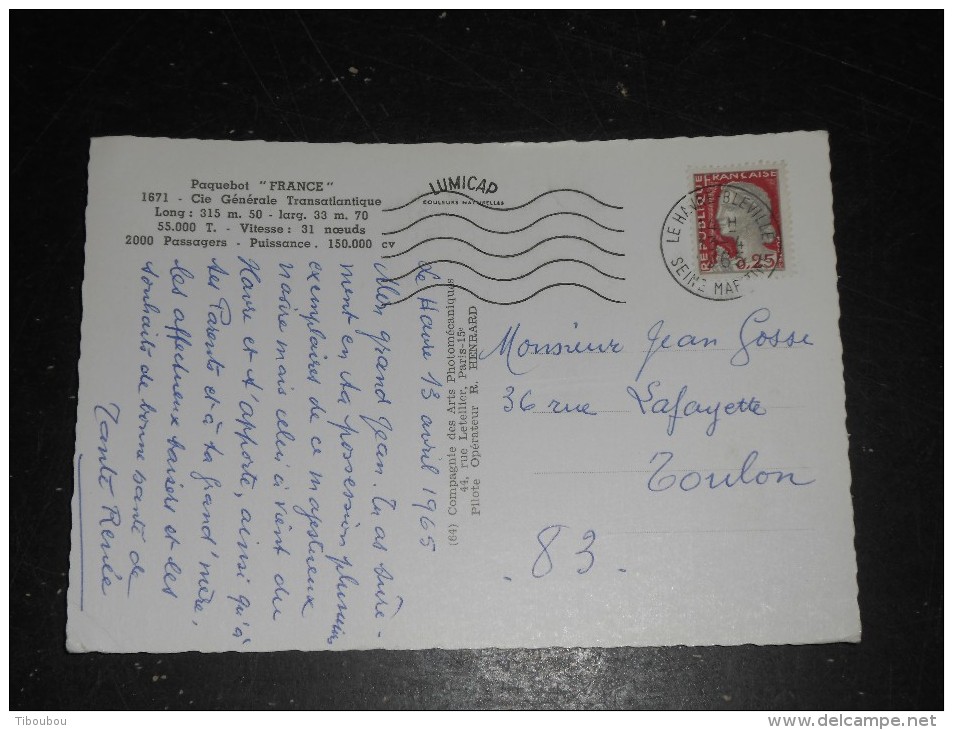 Paquebot "FRANCE"
1671 - Cie Générale Transatlantique
Long : 315 m. 50 - larg. 33 m. 70
55.000 T. - Vitesse : 31 nœuds
2000 Passagers - Puissance . 150.000 cv
LUMICAP
COULEURS NATURELLES
RÉPUBLIQUE FRANÇAISE
0,25
LE HAVRE BLEVILLE
SEINE MAR
Le Havre 13 avril 1965
Mon grand Jean. Tu as sûre-
ment en ta possession plusieurs
exemplaires de ce majestueux
navire mais celui-ci vient du
Havre et t'apporte, ainsi qu'à
tes Parents et à ta Grand'mère,
les affectueux baisers et les
souhaits de bonne santé de
Tante Renée
(64) Compagnie des Arts Photomécaniques
44, rue Letellier, Paris-15e
Pilote Opérateur R. HENRARD
Monsieur Jean Gosse
36 rue Lafayette
Toulon
. 83 .
Tiboubou
delcampe.net